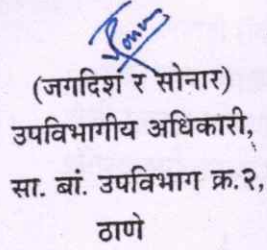 (जगदिश र सोनार)
उपविभागीय अधिकारी,
सा. बां. उपविभाग क्र.२,
ठाणे